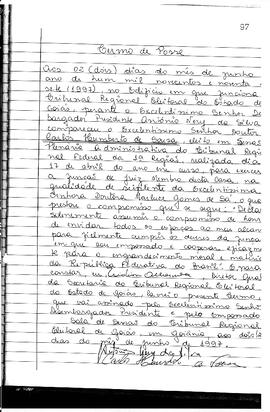 97
Termo de Posse
Aos 02 (dois) dias do mês de junho
ano de hum mil novecentos e noventa e
sete (1997), no Edifício em que funciona
Tribunal Regional Eleitoral do Estado de
Goiás, perante o Excelentíssimo Senhor De
bargador Presidente Antônio Nery da Silva
compareceu o Excelentíssimo Senhor Doutor
Carlos Humberto de Sousa, eleito em Sessão
Plenária Administrativa do Tribunal Regio
nal Federal da 1ª Região, realizada dia
17 de abril do ano em curso, para exercer
a função de Juiz Membro desta Casa, na
qualidade de suplente da Excelentíssima
Senhora Doutora
prestou o compromisso que se segue: "Declaro
solenemente assumir o compromisso de honra
de envidar todos os esforços ao meu alcance
para fielmente cumprir os deveres da função
em que sou empossado e cooperar eficazmen
te para o engrandecimento moral e material
da República Federativa do Brasil". E para
constar, eu, Diretor Geral
da Secretaria do Tribunal Regional Eleitoral
do Estado de Goiás, lavrei o presente termo,
que vai assinado pelo Excelentíssimo Senhor
Desembargador Presidente e pelo empossado
Sala de Sessões do Tribunal Regional
Eleitoral de Goiás, em Goiânia, aos dois
dias do mês de junho de 1997.